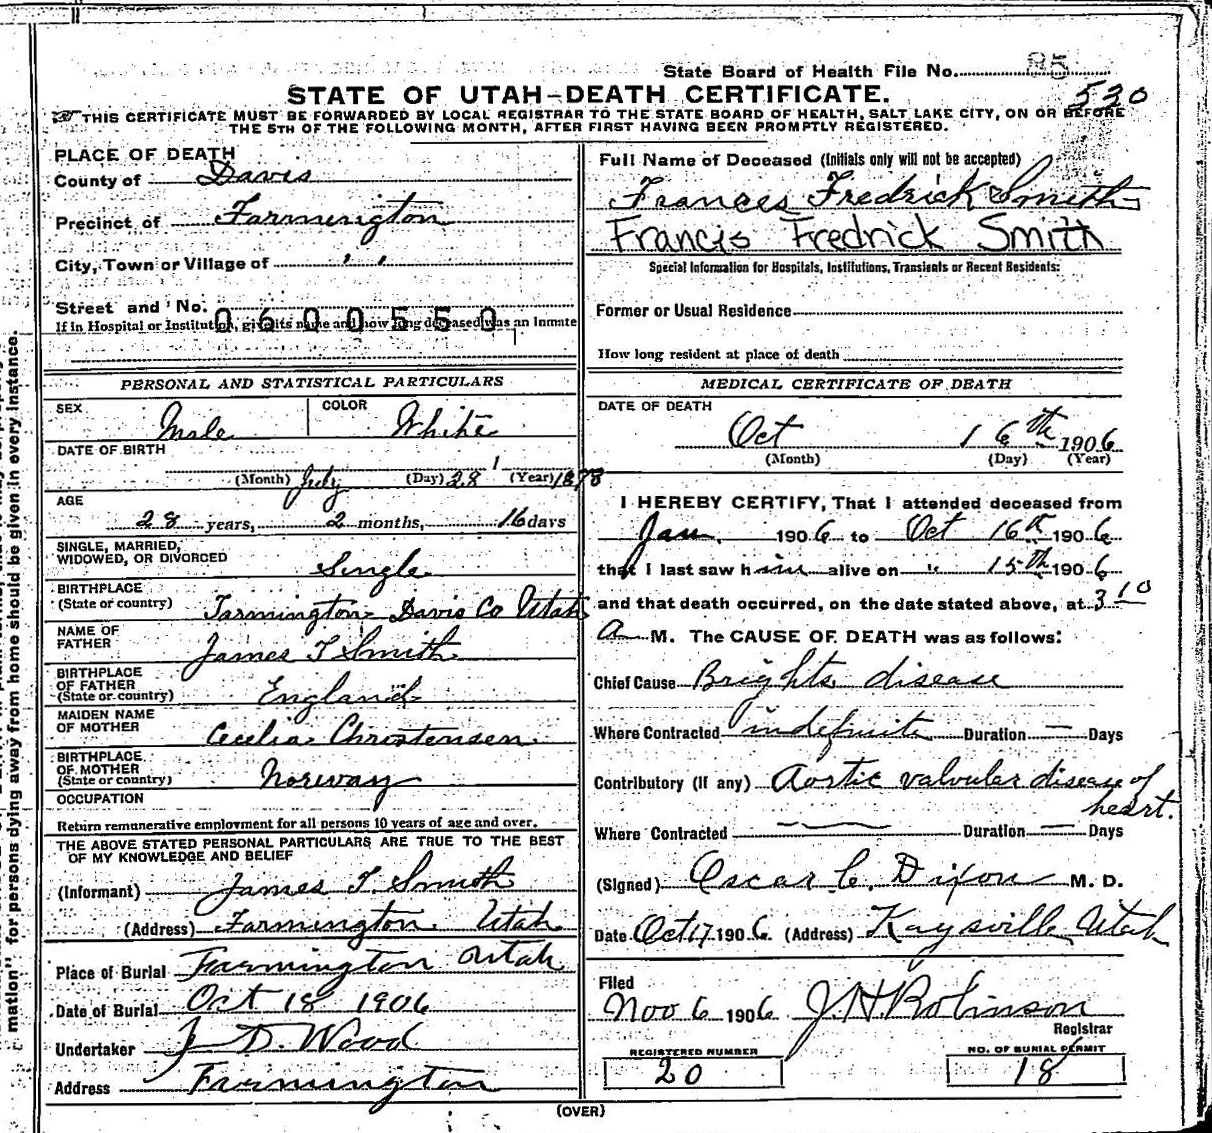 State Board of Health File No. 85
530
STATE OF UTAH—DEATH CERTIFICATE.
THIS CERTIFICATE MUST BE FORWARDED BY LOCAL REGISTRAR TO THE STATE BOARD OF HEALTH, SALT LAKE CITY, ON OR BEFORE
THE 5TH OF THE FOLLOWING MONTH, AFTER FIRST HAVING BEEN PROMPTLY REGISTERED.
PLACE OF DEATH
County of Davis
Precinct of Farmington
City, Town or Village of " "
Street and No.
0600550
If in Hospital or Institution, give its name and how long deceased was an Inmate
PERSONAL AND STATISTICAL PARTICULARS
SEX Male COLOR White
DATE OF BIRTH
(Month) July (Day) 28 (Year) 1878
AGE
28 years, 2 months, 16 days
SINGLE, MARRIED,
WIDOWED, OR DIVORCED Single
BIRTHPLACE
(State or country) Farmington Davis Co Utah
NAME OF
FATHER James T Smith
BIRTHPLACE
OF FATHER
(State or country) England
MAIDEN NAME
OF MOTHER Cecelia Christensen
BIRTHPLACE
OF MOTHER
(State or country) Norway
OCCUPATION
Return remunerative employment for all persons 10 years of age and over.
THE ABOVE STATED PERSONAL PARTICULARS ARE TRUE TO THE BEST
OF MY KNOWLEDGE AND BELIEF
(Informant) James T. Smith
(Address) Farmington Utah
Place of Burial Farmington Utah
Date of Burial Oct 18 1906
Undertaker J D. Wood
Address Farmington
Full Name of Deceased (Initials only will not be accepted)
Frances Fredrick Smith
Francis Fredrick Smith
Special Information for Hospitals, Institutions, Transients or Recent Residents:
Former or Usual Residence
How long resident at place of death
MEDICAL CERTIFICATE OF DEATH
DATE OF DEATH
Oct 16th 1906
(Month) (Day) (Year)
I HEREBY CERTIFY, That I attended deceased from
Jan. 1906 to Oct 16th 1906
that I last saw him alive on " 15th 1906
and that death occurred, on the date stated above, at 3 10
A M. The CAUSE OF DEATH was as follows:
Chief Cause Brights disease
Where Contracted indefinite Duration — Days
Contributory (If any) Aortic valvular disease of
heart.
Where Contracted — Duration — Days
(Signed) Oscar C. Dixon M. D.
Date Oct 17 1906 (Address) Kaysville Utah
Filed
Nov 6 1906 J. H. Robinson
Registrar
REGISTERED NUMBER
20
NO. OF BURIAL PERMIT
18
(OVER)
mation" for persons dying away from home should be given in every instance.